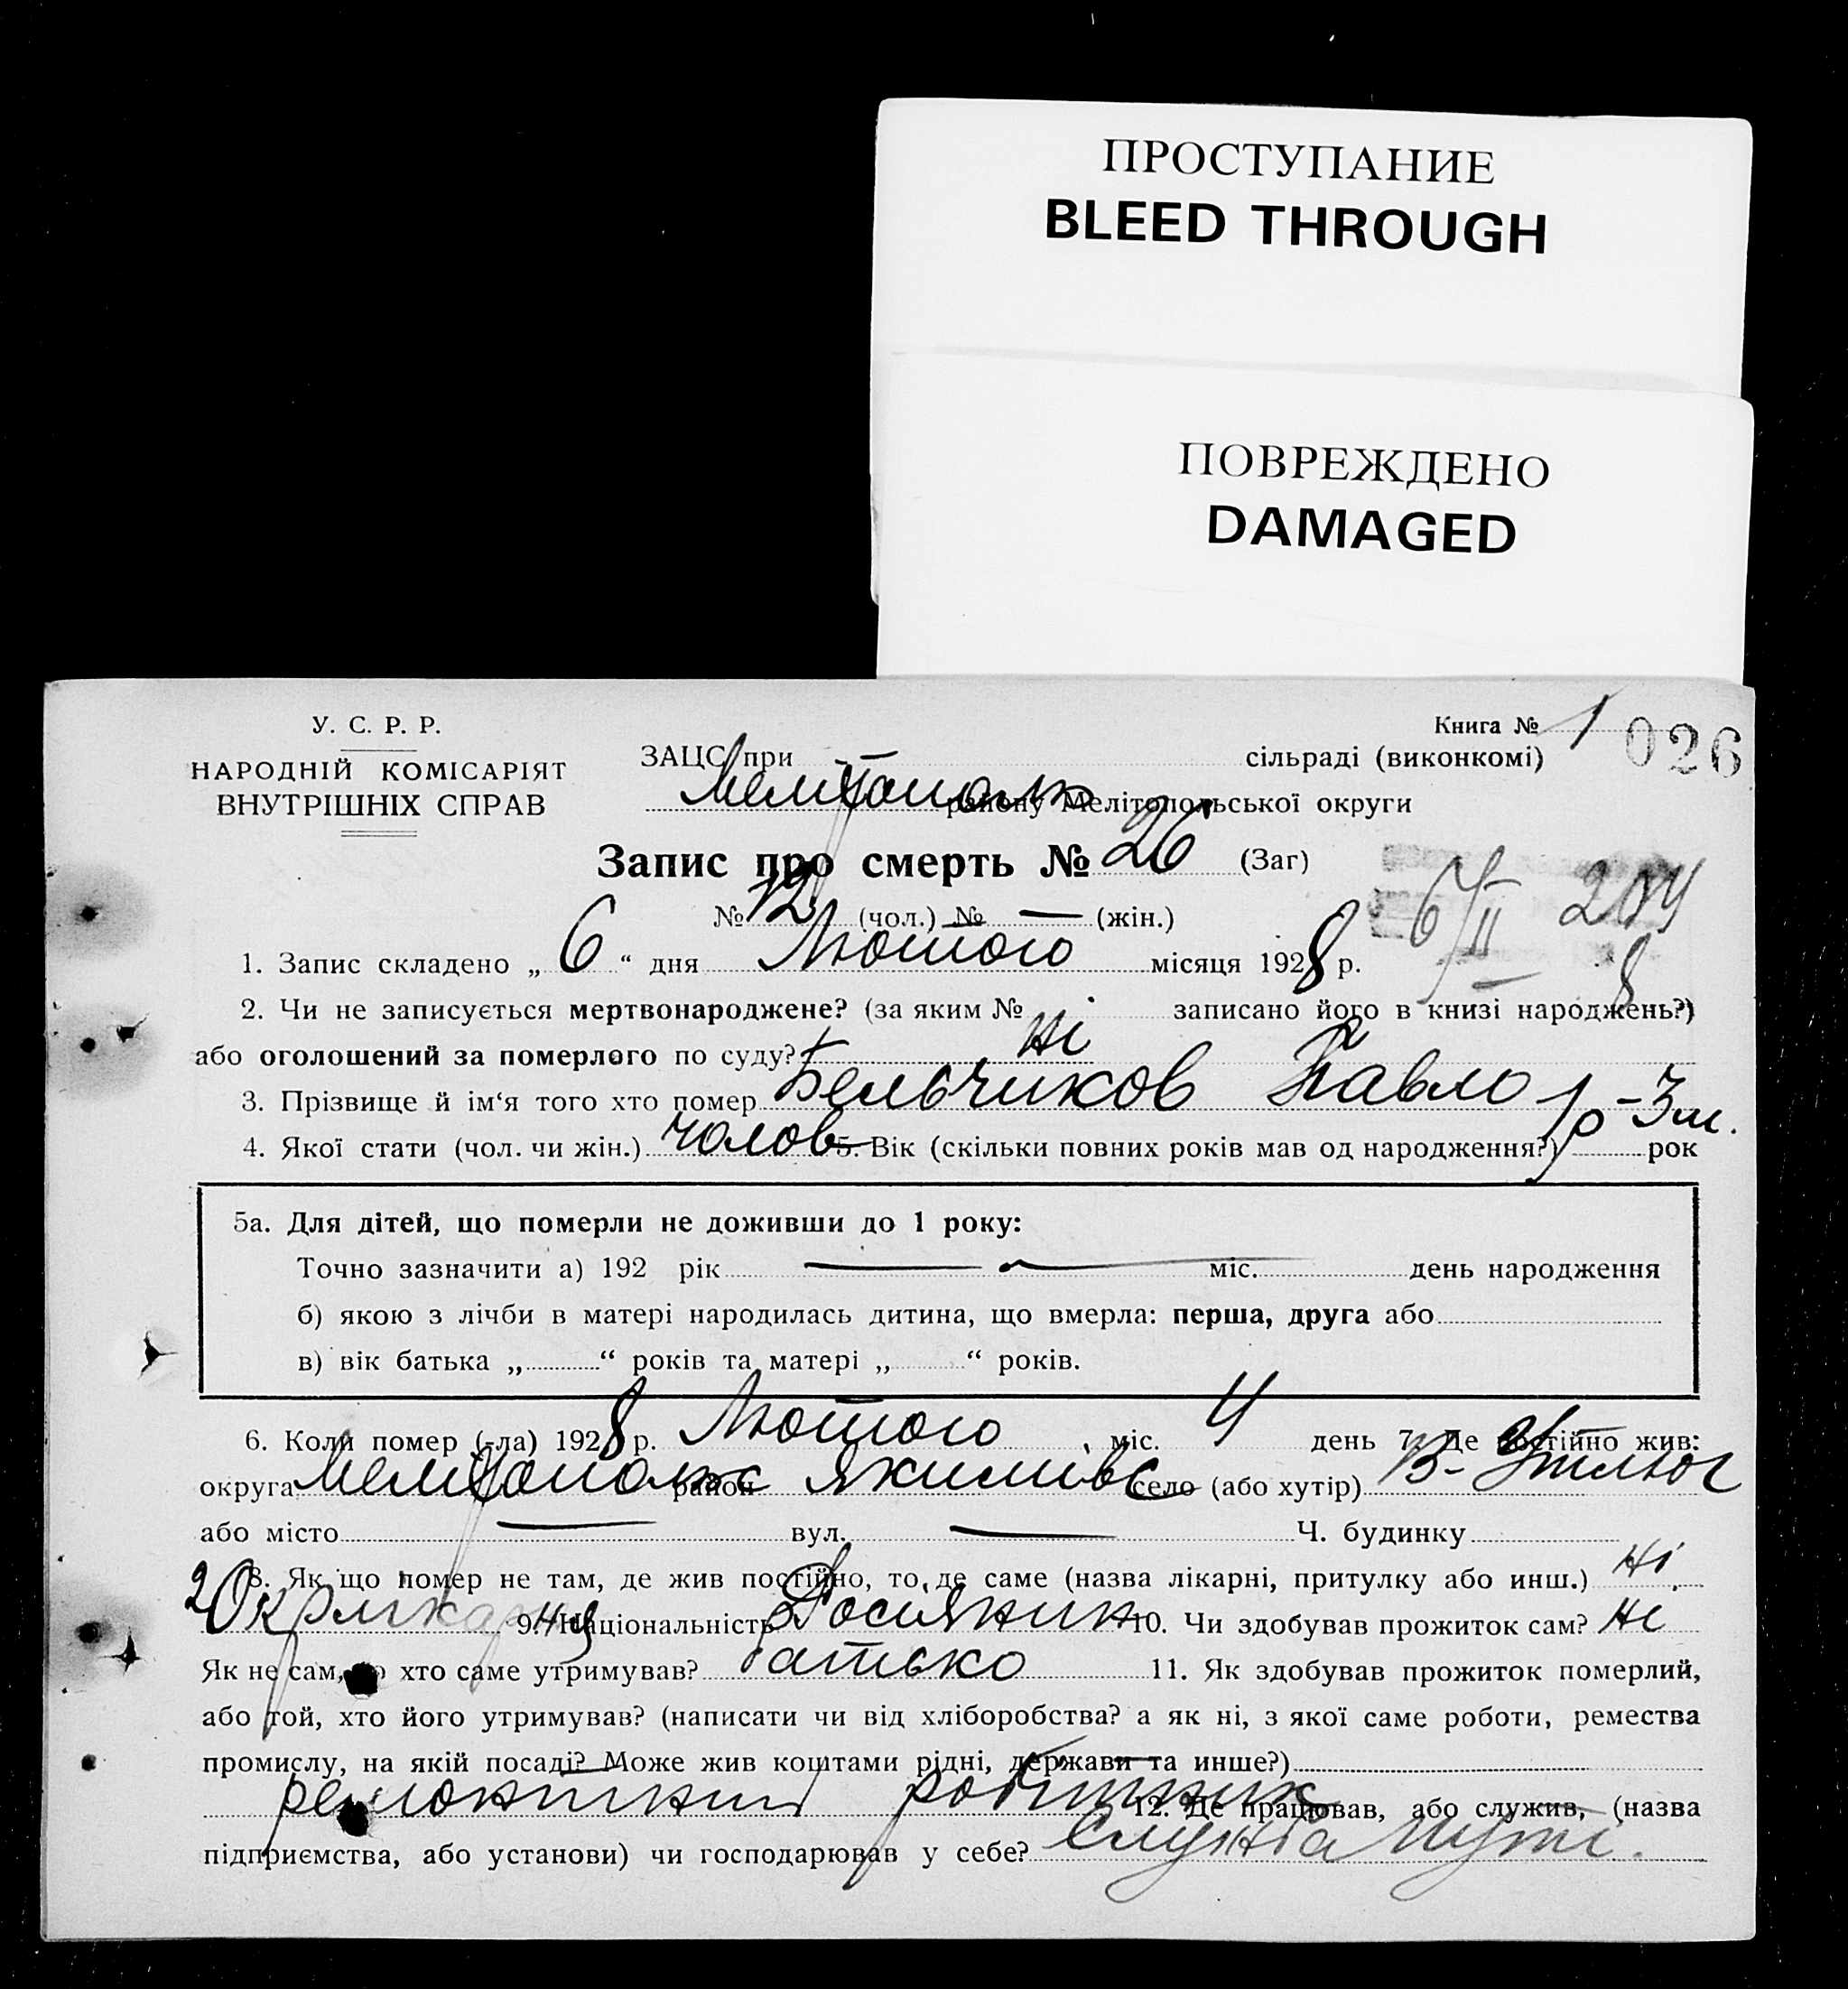 ПРОСТУПАНИЕ
BLEED THROUGH
ПОВРЕЖДЕНО
DAMAGED
У. С. Р. Р.
НАРОДНІЙ КОМІСАРІЯТ
ВНУТРІШНІХ СПРАВ
Книга № 1 026
ЗАЦС при сільраді (виконкомі)
Мелітопольс району Мелітопольської округи
Запис про смерть № 26 (Заг)
№ 12 (чол.) № — (жін.)
6/II 204
8
1. Запис складено „ 6 “ дня Лютого місяця 1928 р.
2. Чи не записується мертвонароджене? (за яким № записано його в книзі народжень?)
або оголошений за померлого по суду? Ні
3. Прізвище й ім‘я того хто помер Бельчиков Павло
4. Якої стати (чол. чи жін.) чолов 5. Вік (скільки повних років мав од народження?) 1р-3м. рок
5а. Для дітей, що померли не доживши до 1 року:
Точно зазначити а) 192 рік — міс. день народження
б) якою з лічби в матері народилась дитина, що вмерла: перша, друга або
в) вік батька „ “ років та матері „ “ років.
6. Коли помер (-ла) 1928 р. Лютого міс. 4 день 7. Де постійно жив:
округа Мелітопольс район Якимівс село (або хутір) В-Утлюг
або місто — вул. — Ч. будинку
8. Як що помер не там, де жив постійно, то де саме (назва лікарні, притулку або инш.) Ні.
9. Національність Росіянин 10. Чи здобував прожиток сам? Ні
Як не сам, хто саме утримував? батько 11. Як здобував прожиток померлий,
або той, хто його утримував? (написати чи від хліборобства? а як ні, з якої саме роботи, ремества
промислу, на якій посаді? Може жив коштами рідні, держави та инше?)
ремонтний робітник 12. Де працював, або служив, (назва
підприємства, або установи) чи господарював у себе? Служба Путі.